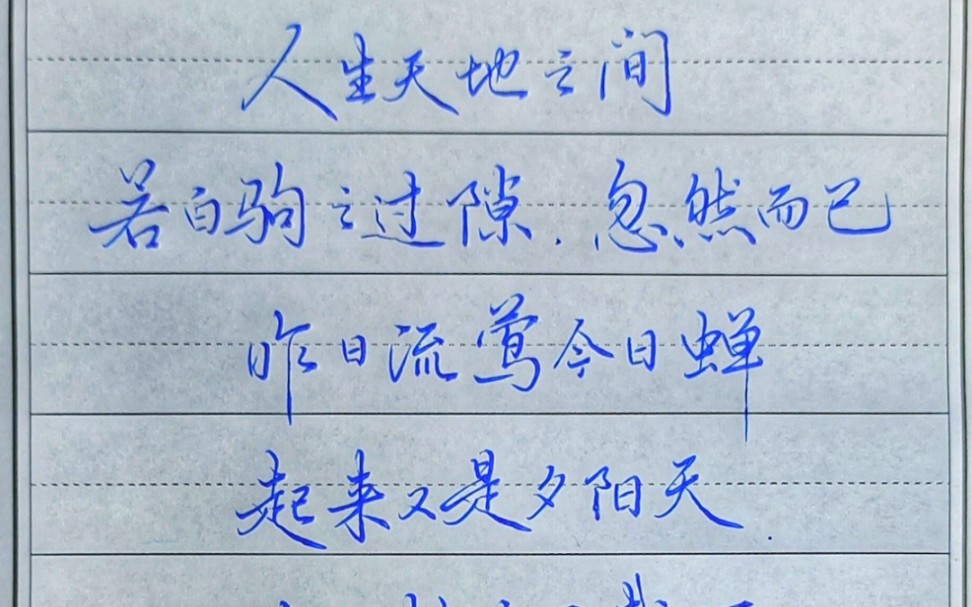 人生天地之间
若白驹之过隙.忽然而已
昨日流莺今日蝉
起来又是夕阳天.